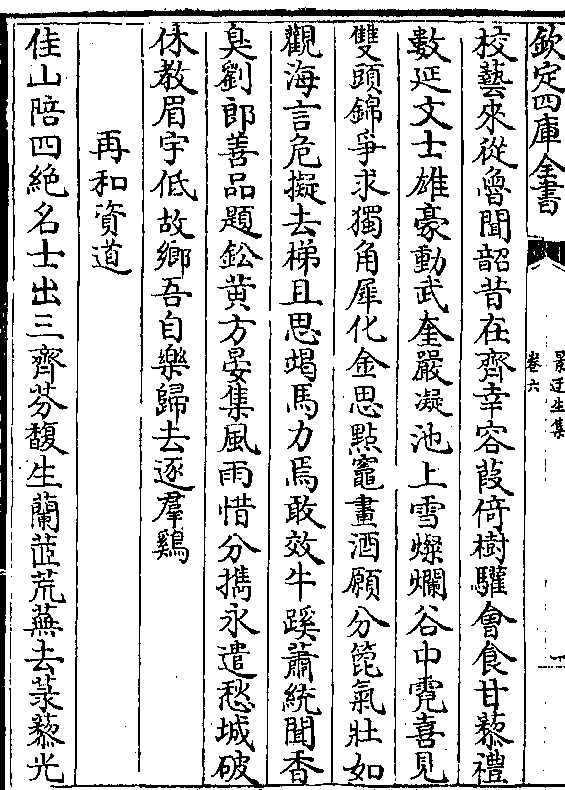 欽定四庫全書
景迂生集
卷六
校藝來從魯聞韶昔在齊幸容葭倚樹驩會食甘藜禮
數延文士雄豪動武奎嚴凝池上雪燦爛谷中霓喜見
雙頭錦爭求獨角犀化金思點竈畫酒願分箆氣壯如
觀海言危擬去梯且思竭馬力焉敢效牛蹊蕭統聞香
臭劉郎善品題鈆黄方晏集風雨惜分攜永遣愁城破
休教眉宇低故鄉吾自樂歸去逐羣鷄
再和資道
佳山陪四絶名士出三齊芬馥生蘭茝荒蕪去菉藜光